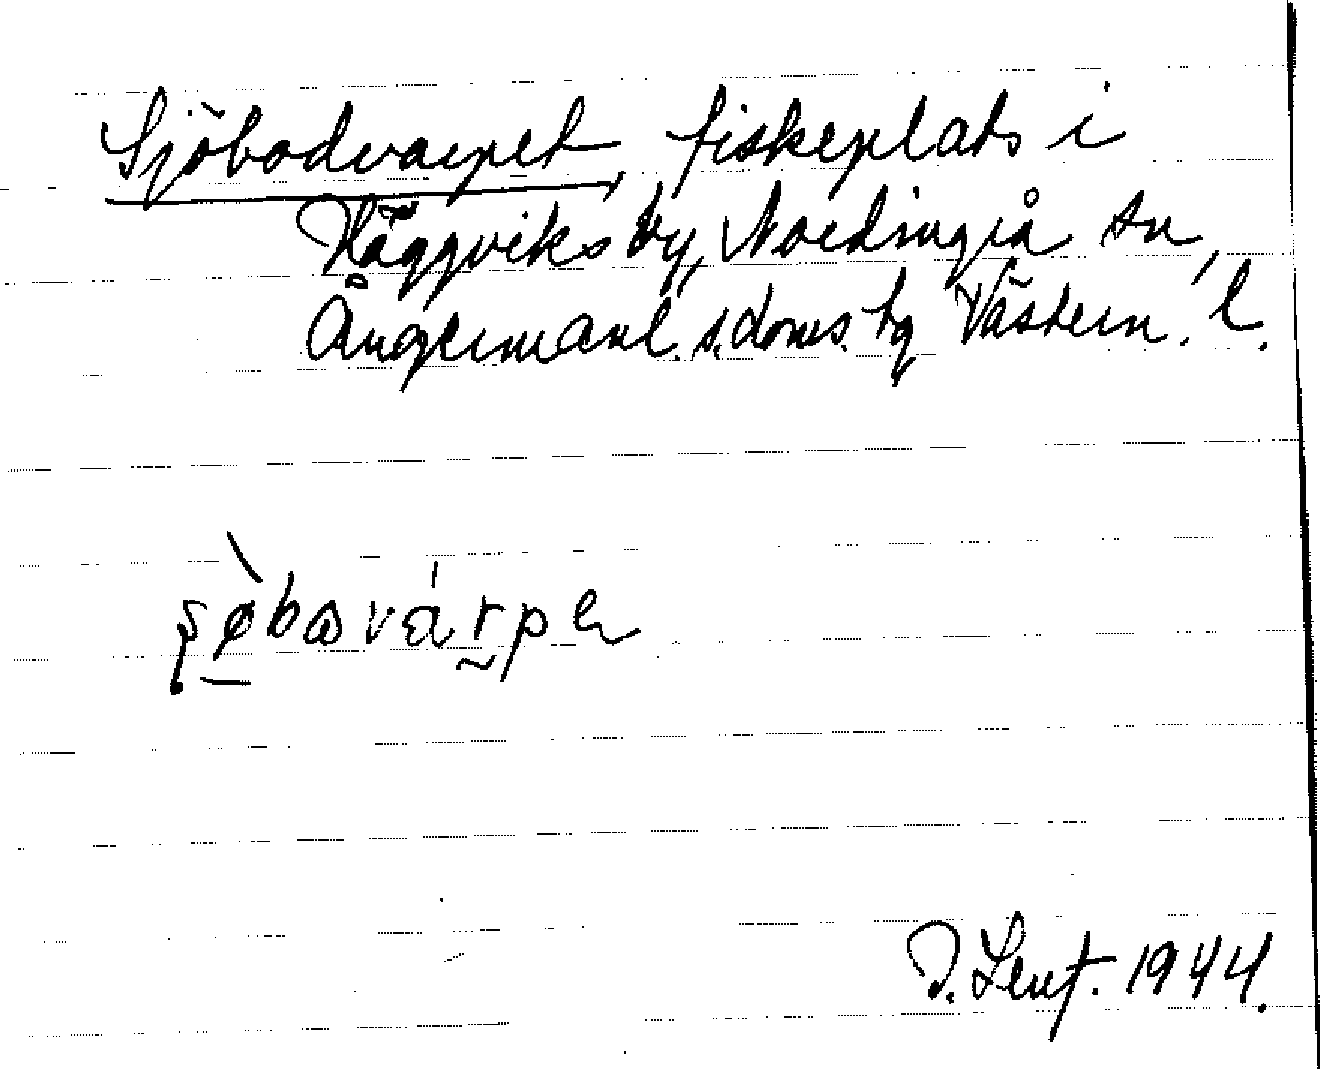 Sjöbodvarpet, fiskeplats i
Häggviks by, Nordingrå sn,
Ångermanl. s. doms. tg Västern. l.
1944.